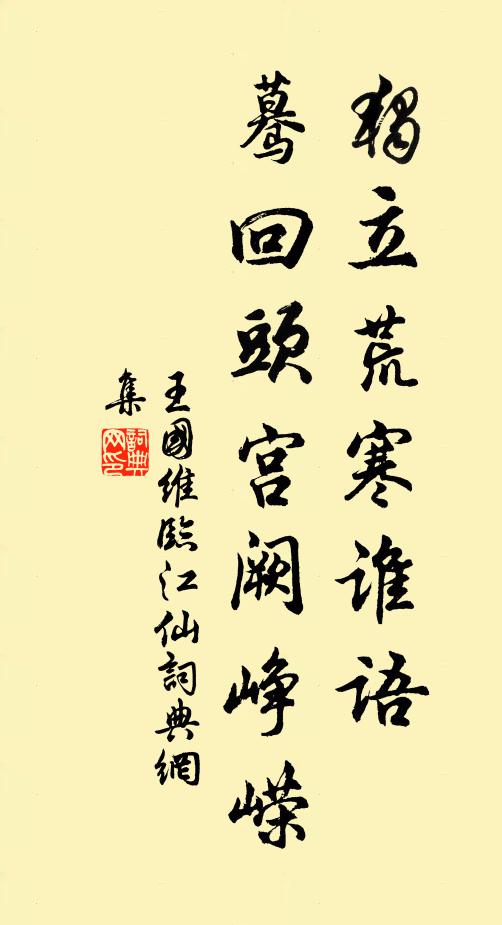 獨立荒寒誰語
驀回頭宮闕崢嶸
王國維臨江仙詞典網
集
詞典
网印